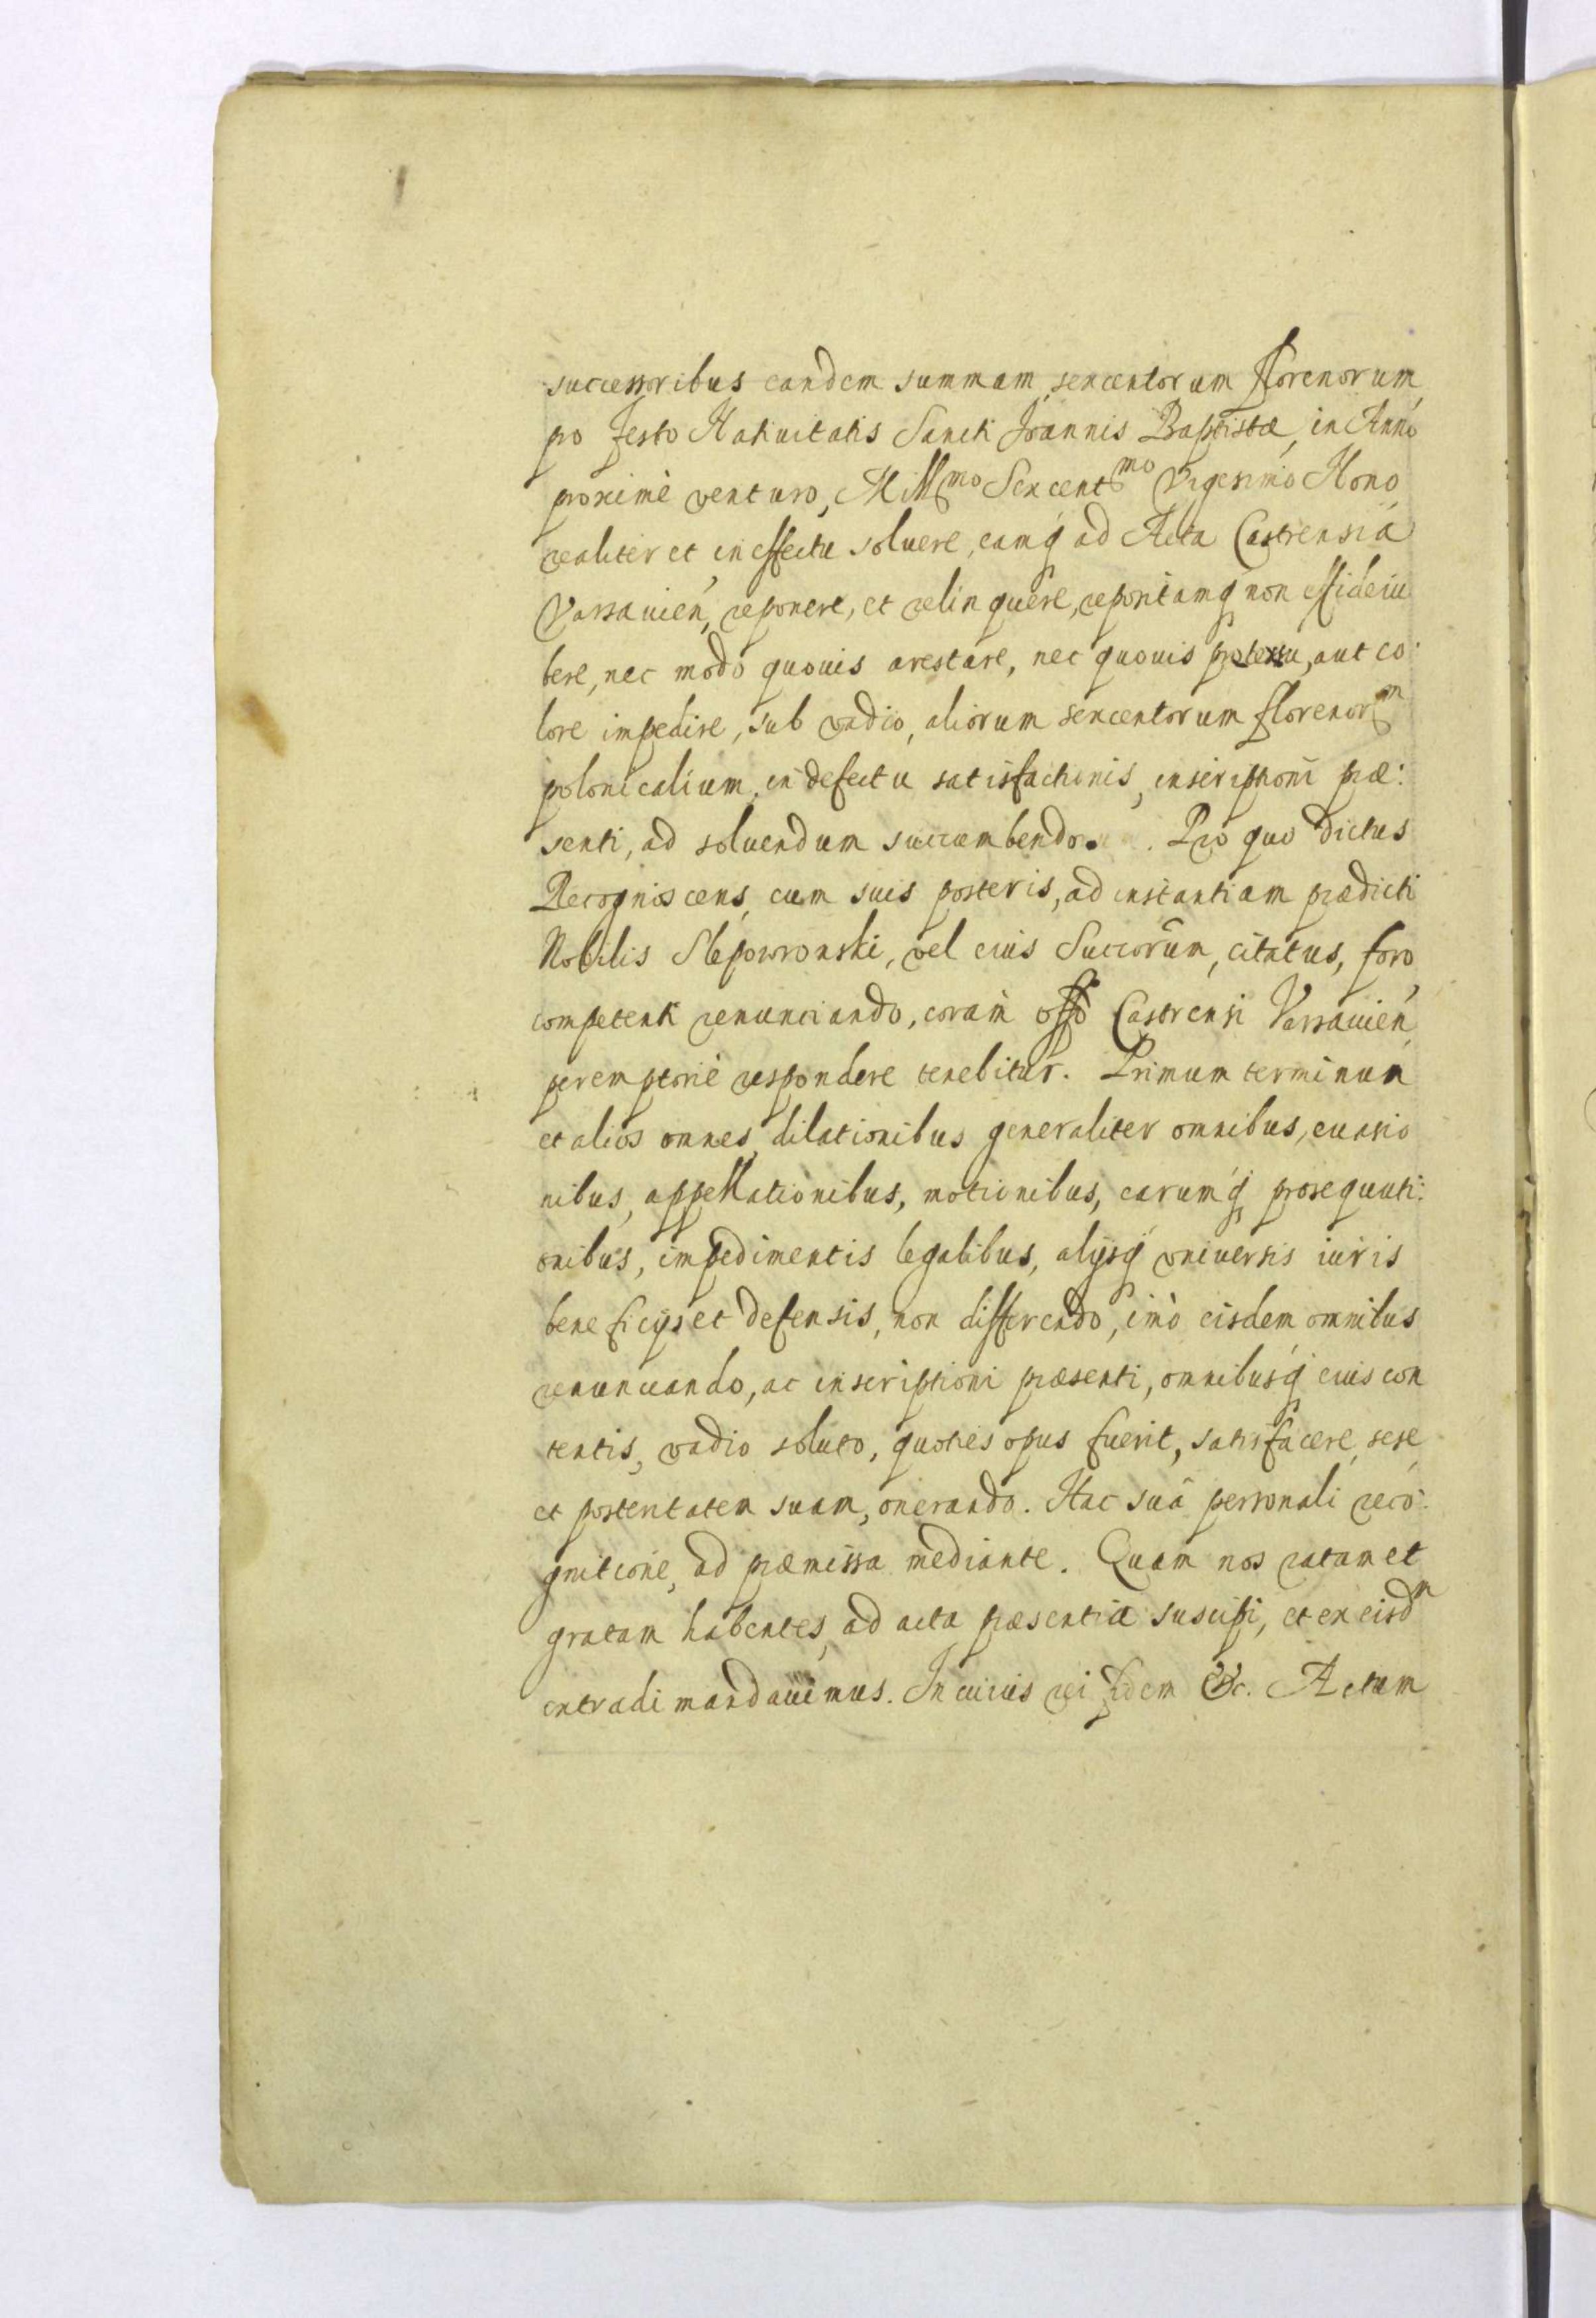 successoribus eandem summam, sexcentorum florenorum,
pro festo Natiuitatis Sancti Joannis Baptistæ, in Anno
proximè venturo, Millmo Sexcentmo Vigesimo Nono
realiter et in effectu soluere, eamq́ ad Acta Castrensia
Varsauien, reponere, et relinquere, repositamq́ non
bere, nec modo quouis arestare, nec quouis prætextu, aut co:
lore impedire, sub vadio, aliorum sexcentorum florenorm
polonicalium, in defectu satisfactionis, inscriptioni præ:
senti, ad soluendum succumbendo. Pro quo dictus
Recognoscens, cum suis posteris, ad instantiam prædicti
Nobilis Slepowronski, vel eius Succorūm, citatus, foro
competenti renunciando, coram offo Castrensi Varsauien,
peremptoriè respondere tenebitur. Primum terminum
et alios omnes, dilationibus generaliter omnibus, euasio
nibus, appellationibus, motionibus, earumq́ prosequuti:
onibus, impedimentis legalibus, alijsq́ vniuersis iuris
beneficijs et defensis, non differendo, imò eisdem omnibus
renunciando, ac inscriptioni præsenti, omnibusq́ eius con
tentis, vadio soluto, quoties opus fuerit, satisfacere, sese
et posteritatem suam, onerando. Hac suâ personali reco:
gnitione, ad præmissa mediante. Quam nos ratam et
gratam habentes, ad acta præsentia suscipi, et ex eisdm
extradi mandauimus. In cuius rei fidem &c. Actum